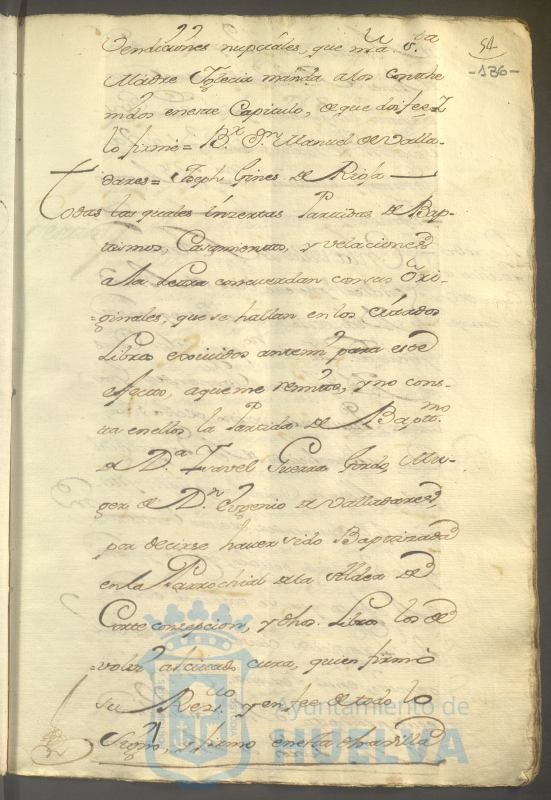 54
-136-
Vendiciones nupciales, que nra. Sta.
Madre Iglesia manda alos Conthe
nidos eneste Capitulo, de que doi fee=I
lo firmé= Br. Dn. Manuel de Valla-
dares= Joseph Gines de Rioja
Todas las quales Ynsertas Partidas de Bap-
tismos, Casamientos, y velaciones
ala Letra concuerdan consus Ori-
=ginales, que se hallan en los citados
Libros exsividos antemi para este
efecto, aqueme remito, y no cons-
ta enellos la Partida de Baptmo.
de Da. Isavel Guerra Gordo, Mu-
ger de Dn. Eugenio de Valladares,
por decirse haver sido Baptizada
enla Parrochial dela Aldea de
Corte concepcion, y dhos. Libros los de
=volví al citado cura, quien firmó
su Rezivo y en fee de todo lo
Signo, y firmo enesta dha villa
Ayuntamiento de
HUELVA